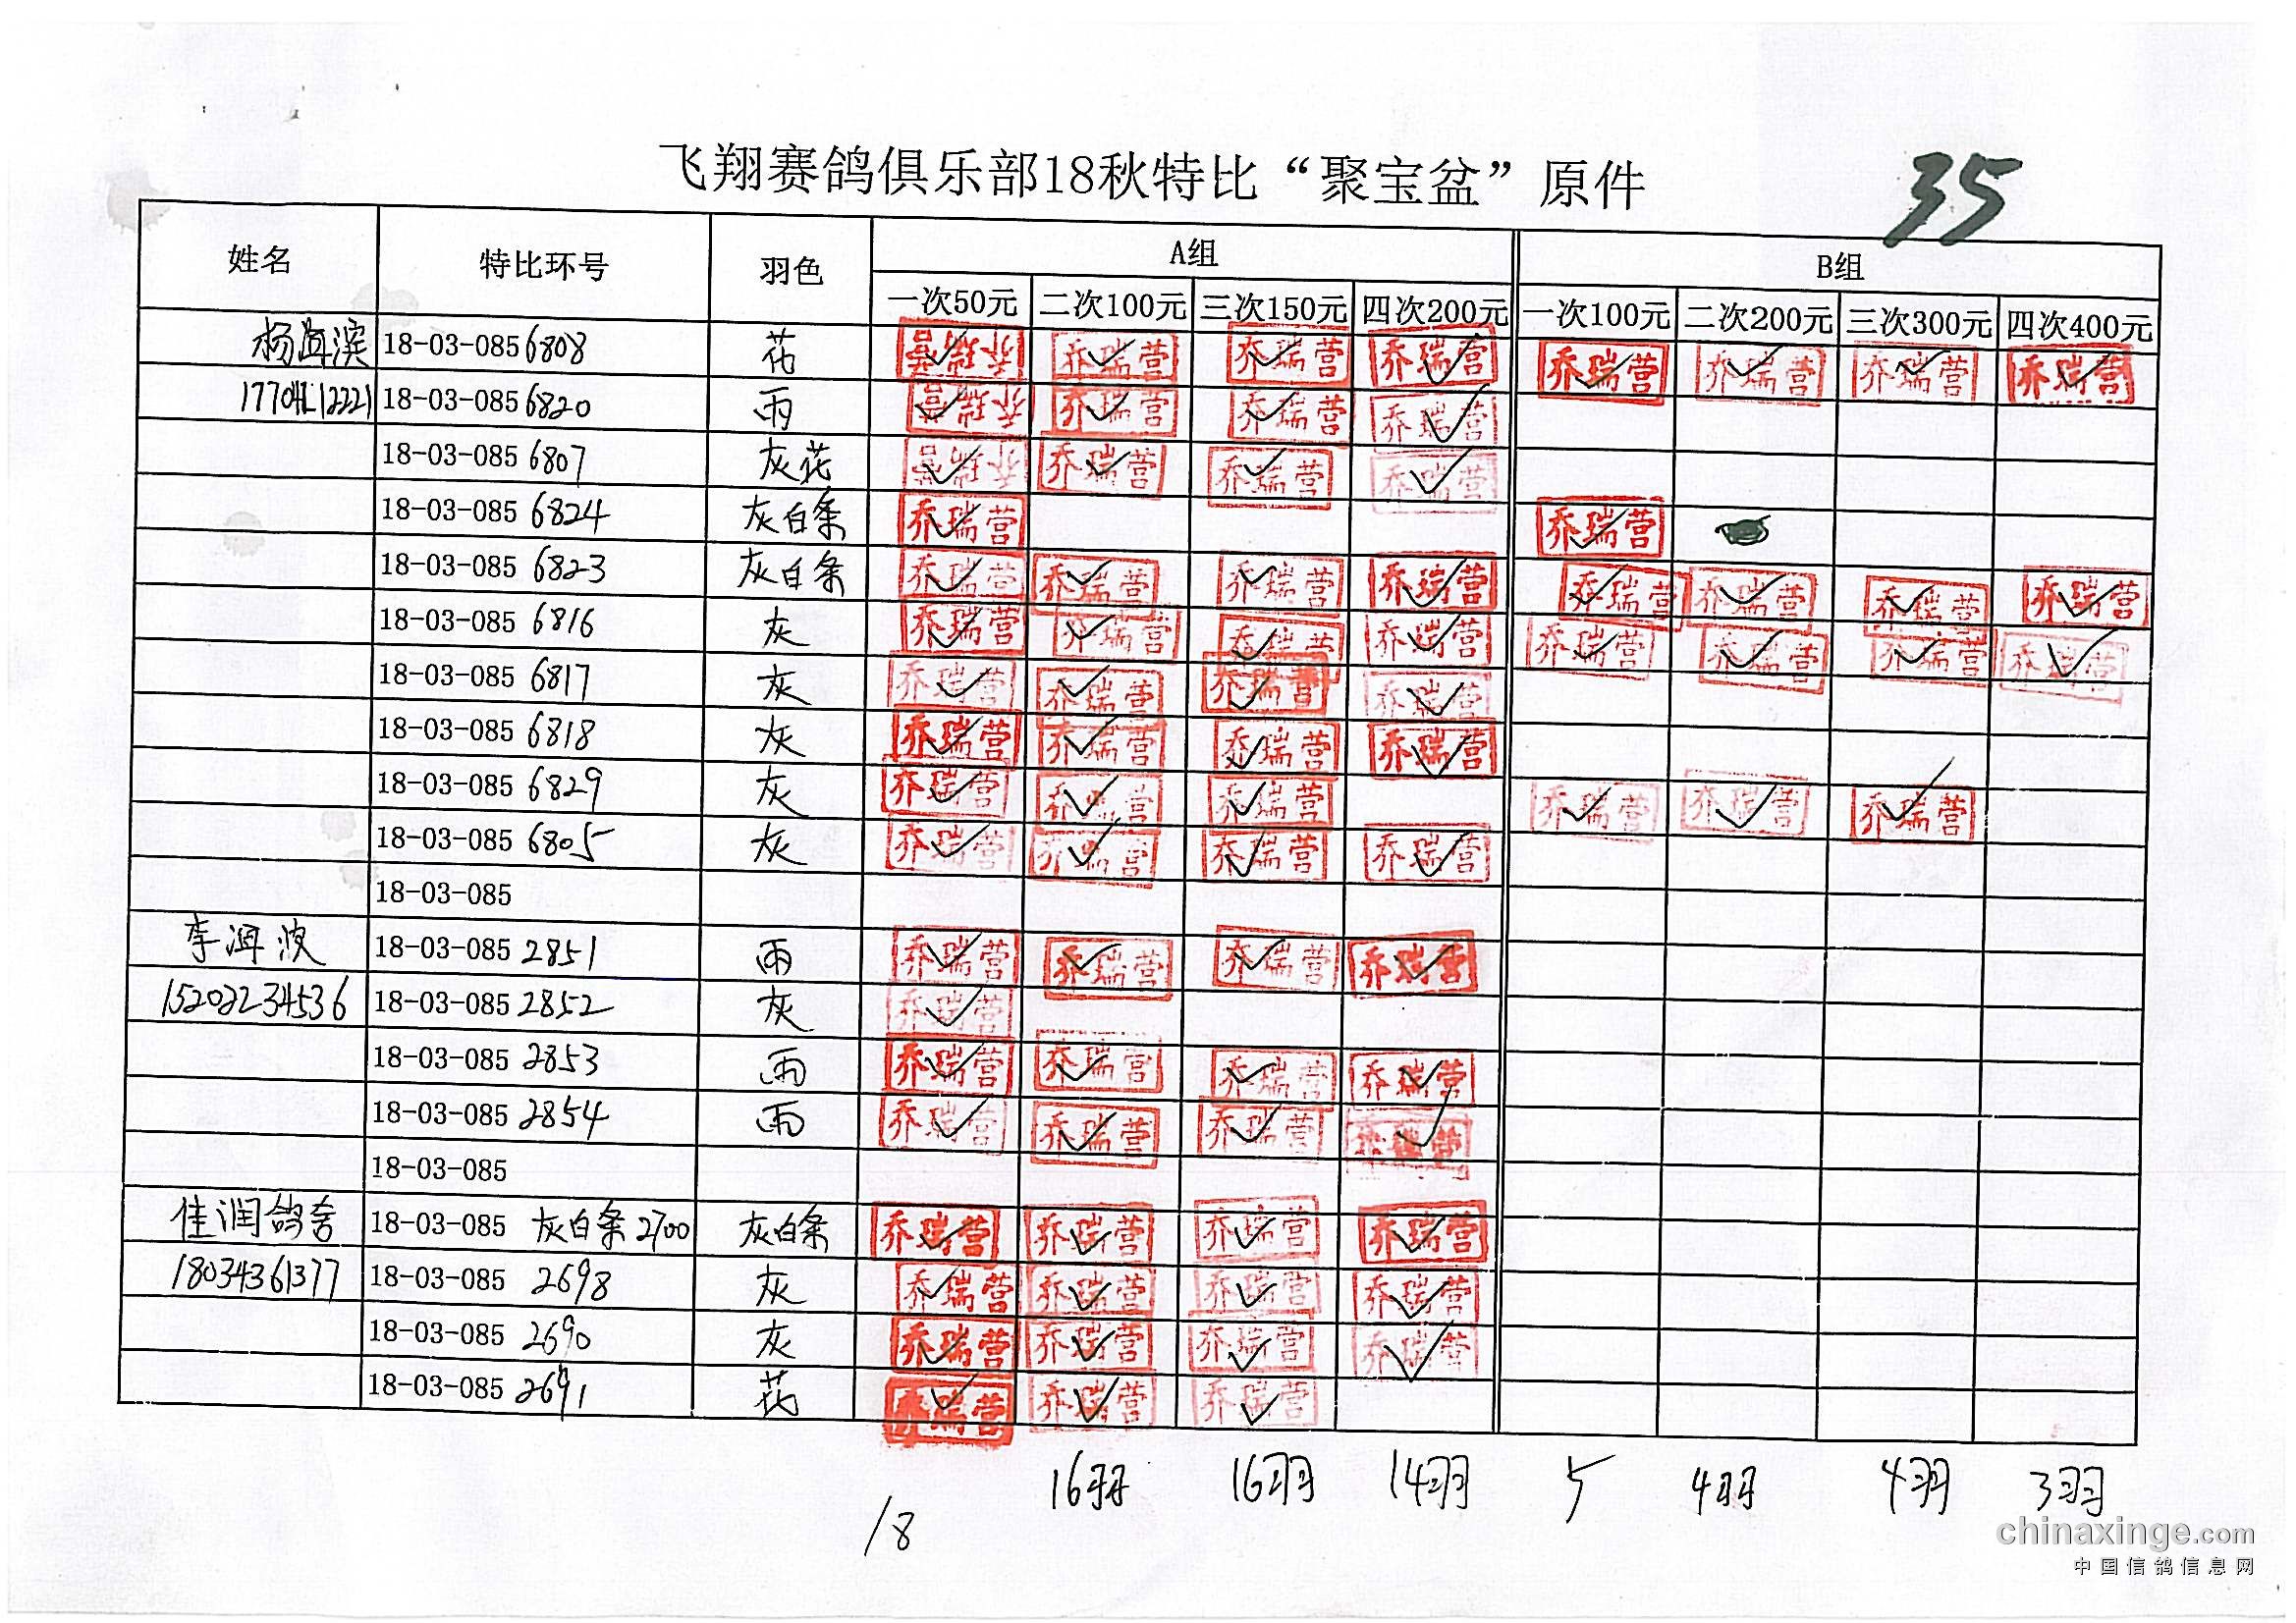 飞翔赛鸽俱乐部18秋特比“聚宝盆”原件
35
姓名 特比环号 羽色 A组 B组
一次50元 二次100元 三次150元 四次200元 一次100元 二次200元 三次300元 四次400元
杨海滨 18-03-085 6808 花 乔瑞营 乔瑞营 乔瑞营 乔瑞营 乔瑞营 乔瑞营 乔瑞营 乔瑞营
18-03-085 6820 雨 乔瑞营 乔瑞营 乔瑞营 乔瑞营
18-03-085 6807 灰花 乔瑞营 乔瑞营 乔瑞营 乔瑞营
18-03-085 6824 灰白条 乔瑞营 乔瑞营
18-03-085 6823 灰白条 乔瑞营 乔瑞营 乔瑞营 乔瑞营 乔瑞营 乔瑞营 乔瑞营 乔瑞营
18-03-085 6816 灰 乔瑞营 乔瑞营 乔瑞营 乔瑞营 乔瑞营 乔瑞营 乔瑞营 乔瑞营
18-03-085 6817 灰 乔瑞营 乔瑞营 乔瑞营 乔瑞营
18-03-085 6818 灰 乔瑞营 乔瑞营 乔瑞营 乔瑞营
18-03-085 6829 灰 乔瑞营 乔瑞营 乔瑞营 乔瑞营 乔瑞营 乔瑞营
18-03-085 6805 灰 乔瑞营 乔瑞营 乔瑞营 乔瑞营
18-03-085
李海波 18-03-085 2851 雨 乔瑞营 乔瑞营 乔瑞营 乔瑞营
15202234536 18-03-085 2852 灰 乔瑞营
18-03-085 2853 雨 乔瑞营 乔瑞营 乔瑞营 乔瑞营
18-03-085 2854 雨 乔瑞营 乔瑞营 乔瑞营 乔瑞营
18-03-085
佳润鸽舍 18-03-085 灰白条2700 灰白条 乔瑞营 乔瑞营 乔瑞营 乔瑞营
18034361377 18-03-085 2698 灰 乔瑞营 乔瑞营 乔瑞营 乔瑞营
18-03-085 2690 灰 乔瑞营 乔瑞营 乔瑞营 乔瑞营
18-03-085 2691 花 乔瑞营 乔瑞营 乔瑞营
18 16羽 16羽 14羽 5 4羽 4羽 3羽
chinaxinge.com
中国信鸽信息网